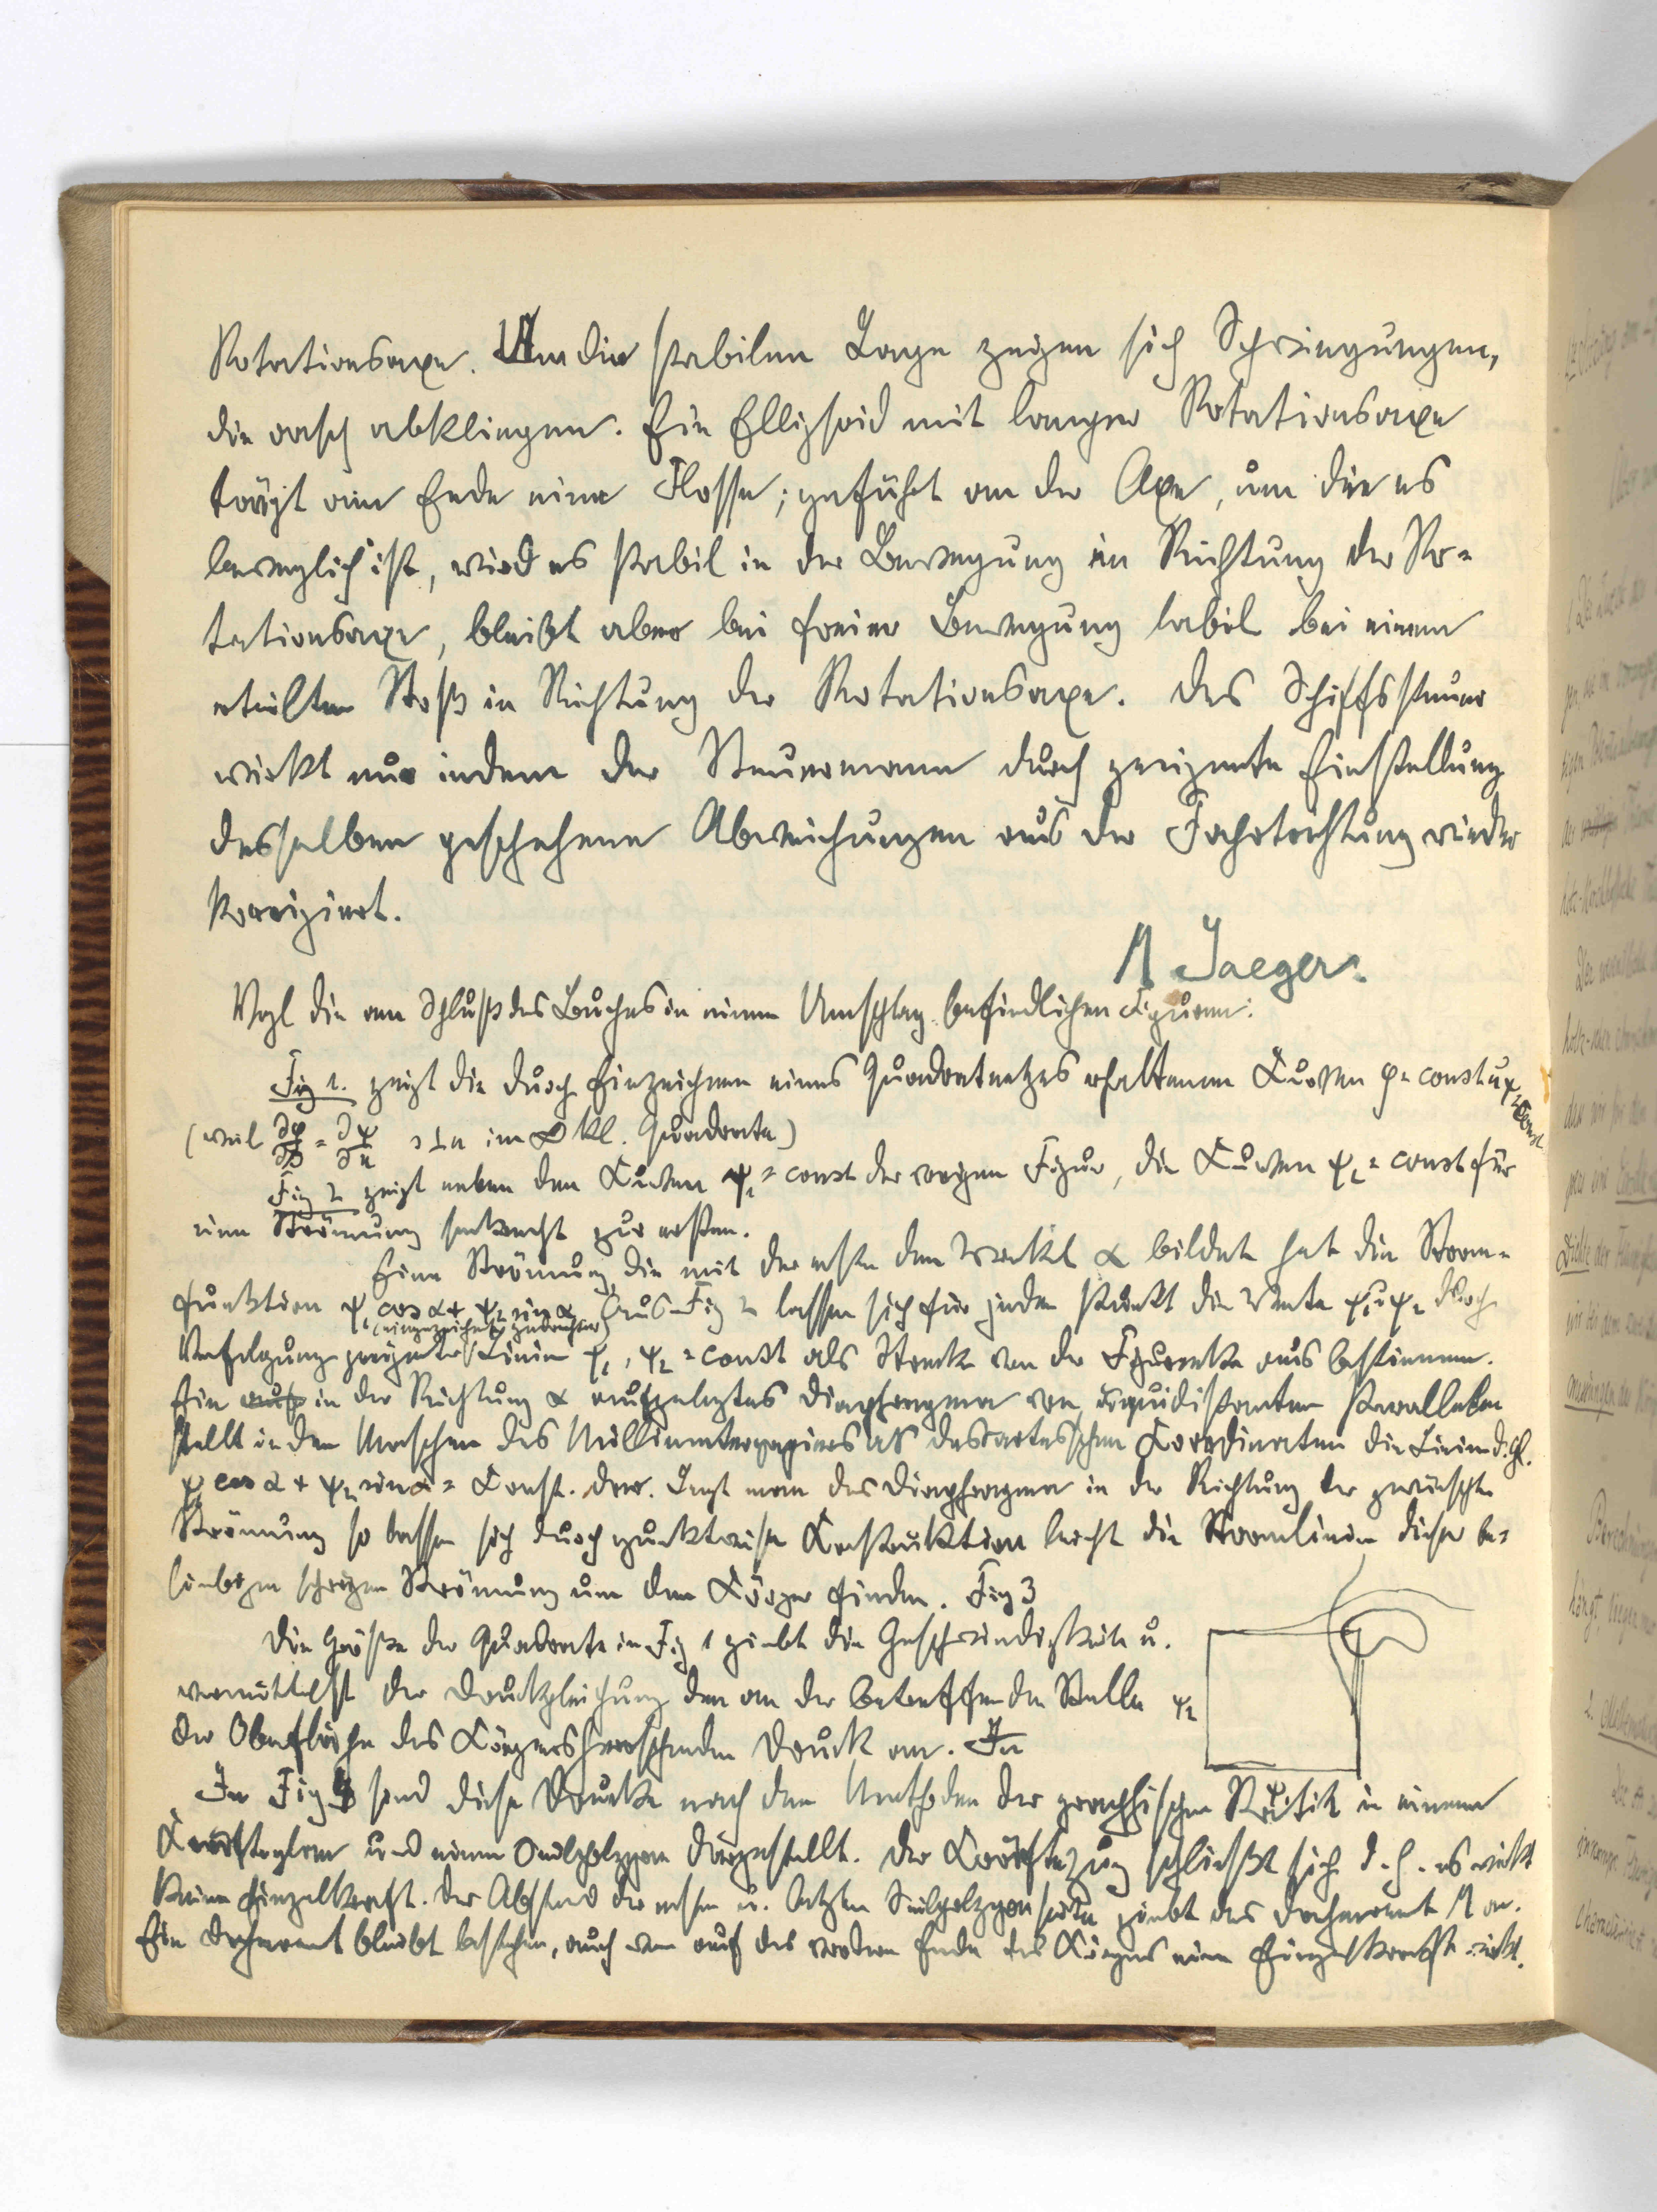 Rotationsaxe. Um die stabilen Lage zeigen sich Schwingungen,
die rasch abklingen. Ein Ellipsoid mit langer Rotationsaxe
trägt am Ende eine Flosse; geführt an der Axe, um die es
beweglich ist, wird es stabil in der Bewegung in Richtung der Ro-
tationsaxe, bleibt aber bei freier Bewegung labil bei einem
erteilten Stoß in Richtung der Rotationsaxe. Das Schiffssteuer
wirkt nur indem der Steuermann durch geeignete Einstellung
desselben geschehene Abweichungen aus der Fahrtrichtung wieder
korrigiert.
M Jaeger.
Vgl die am Schluß des Buches in einem Umschlag befindlichen Figuren:
Fig 1. zeigt die durch Einzeichnen eines Quadratnetzes erhaltenen Kurven φ = const u ψ = const
(weil ∂φ/∂s = ∂ψ/∂n s⊥n im ∞ kl. Quadrate)
Fig 2 zeigt neben den Kurven ψ₁ = const der vorigen Figur, die Kurven ψ₂ = const für
eine Strömung senkrecht zur ersten.
Eine Strömung, die mit der ersten den Winkel α bildet hat die Strom-
funktion ψ₁ cos α + ψ₂ sin α. Aus Fig 2 lassen sich für jeden Punkt die Werte ψ₁ u ψ₂ durch
Verfolgung geeigneter (eingezeichnet gedachter) Linien ψ₁, ψ₂ = const als Strecke von der Figurenecke aus bestimmen.
Ein in der Richtung α aufgelegtes Diaphragma von äquidistanten Parallelen
stellt in den Maschen des Millimeterpapieres als descartesschen Koordinaten die Linien d. Gl.
ψ₁ cos α + ψ₂ sin α = Const. dar. Legt man das Diaphragma in der Richtung der gewünschten
Strömung so lassen sich durch punktweise Konstruktion leicht die Stromlinien dieser be-
liebigen schrägen Strömung um den Körper finden. Fig 3
Die Größe der Quadrate in Fig 1 giebt die Geschwindigkeit u.
vermittelst der Druckgleichung den an der betreffenden Stelle
ψ₂
der Oberfläche des Körpers herrschenden Druck an. In
ψ₁
In Fig 4 sind diese Drucke nach den Methoden der graphischen Statik in einem
Kräfteplan und einem Seilpolygon dargestellt. Der Kräftezug schließt sich d. h. es wirkt
keine Einzelkraft. Der Abstand der ersten u. letzten Seilpolygonseite giebt das Drehmoment M an.
Ein Drehmoment bleibt bestehen, auch wenn auf das vordere Ende des Körpers eine Einzelkraft wirkt.